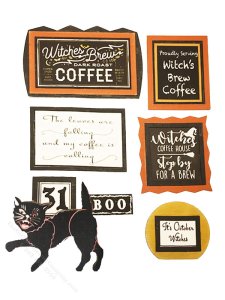 Witches Brew
DARK ROAST
COFFEE
Proudly Serving
Witch's
Brew
Coffee
The leaves are
falling
and my coffee is
calling
Witches
COFFEE HOUSE
Stop by
FOR A BREW
31
BOO
It's October
Witches